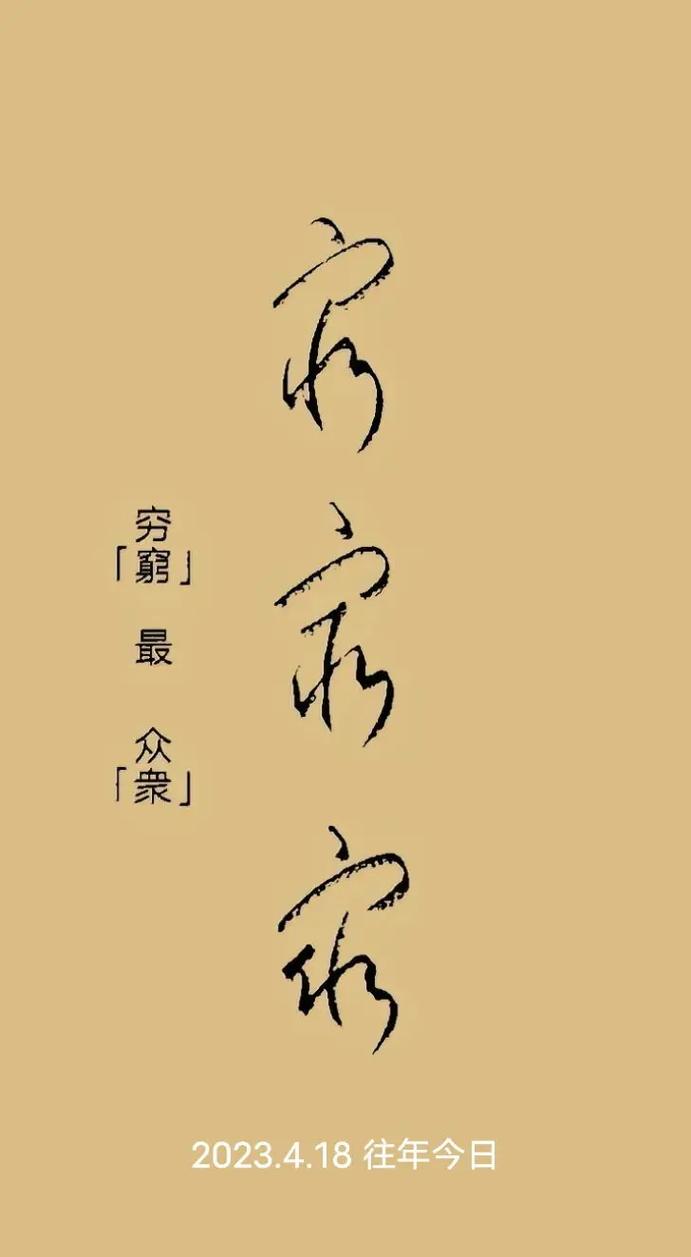 窮
最
衆
穷
「窮」
最
众
「衆」
2023.4.18 往年今日